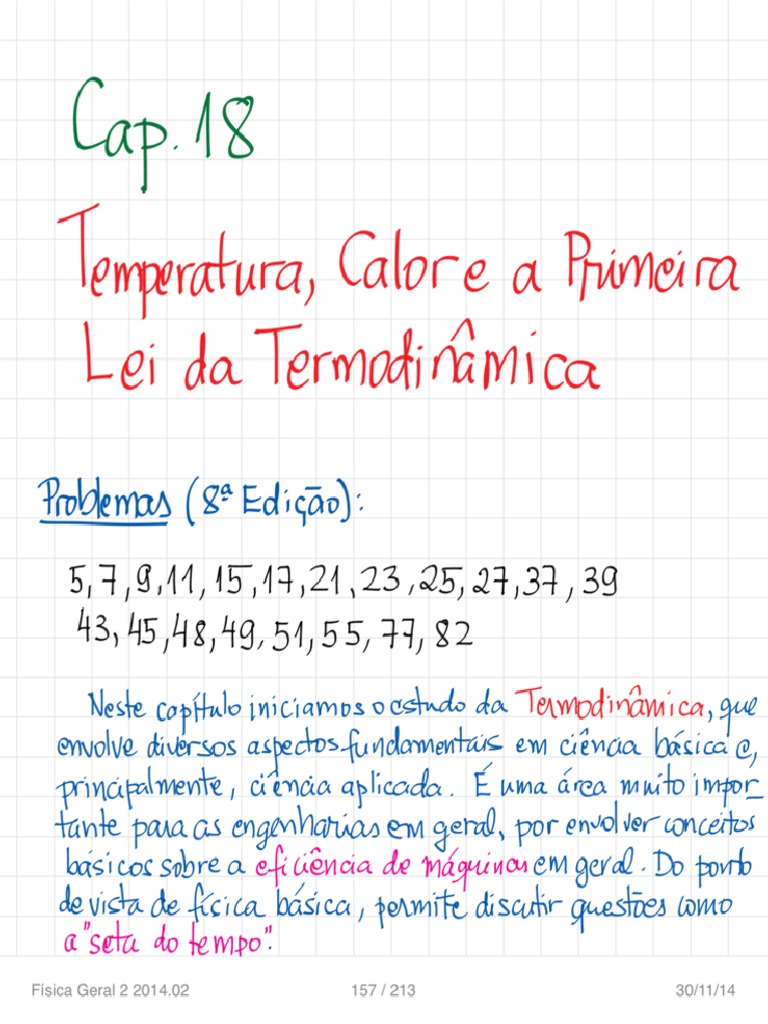 Cap. 18
Temperatura, Calor e a Primeira
Lei da Termodinâmica
Problemas (8ª Edição):
5, 7, 9, 11, 15, 17, 21, 23, 25, 27, 37, 39
43, 45, 48, 49, 51, 55, 77, 82
Neste capítulo iniciamos o estudo da Termodinâmica, que
envolve diversos aspectos fundamentais em ciência básica e,
principalmente, ciência aplicada. É uma área muito impor-
tante para as engenharias em geral, por envolver conceitos
básicos sobre a eficiência de máquinas em geral. Do ponto
de vista de física básica, permite discutir questões como
a "seta do tempo".
Física Geral 2 2014.02 157 / 213 30/11/14